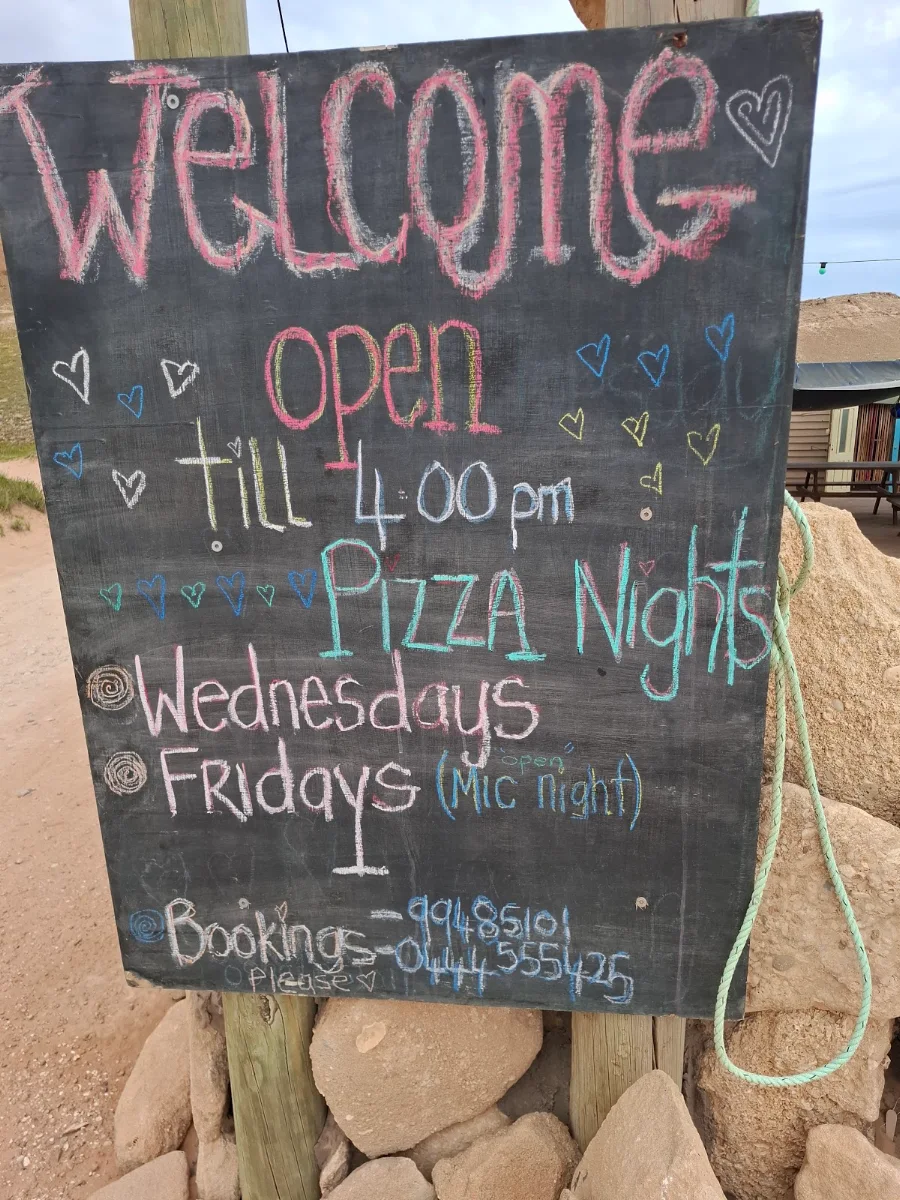 Welcome
open
till 4:00 pm
Pizza Nights
Wednesdays
Fridays ("open" Mic night)
Bookings = 99485101
Please - 0444555425